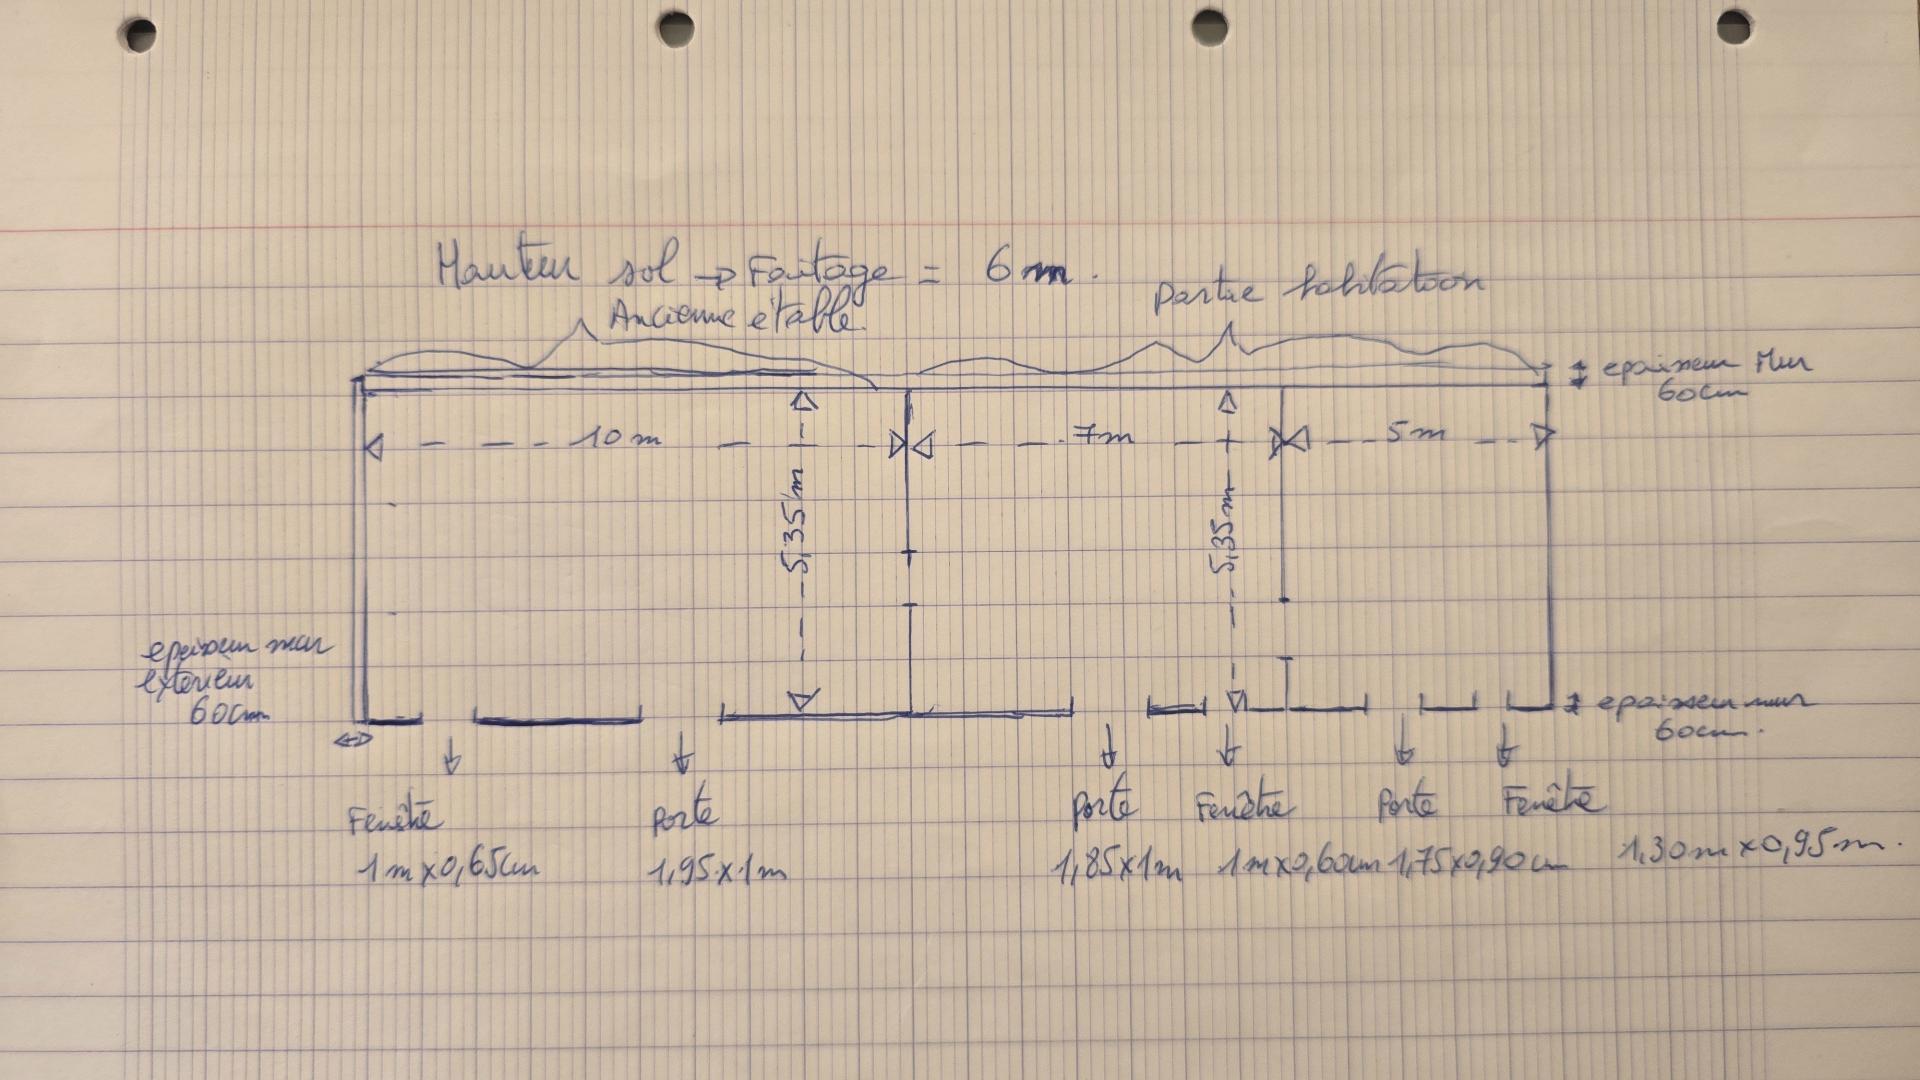 Hauteur sol → Faitage = 6m.
Ancienne étable.
partie habitation
epaisseur Mur
60cm
10m
7m
5m
5,35m
5,35m
epaisseur mur
extérieur
60cm
epaisseur mur
60cm.
Fenêtre
1m x 0,65cm
porte
1,95 x 1m
porte
1,85 x 1m
Fenêtre
1m x 0,60cm
Porte
1,75 x 0,90cm
Fenêtre
1,30m x 0,95m.